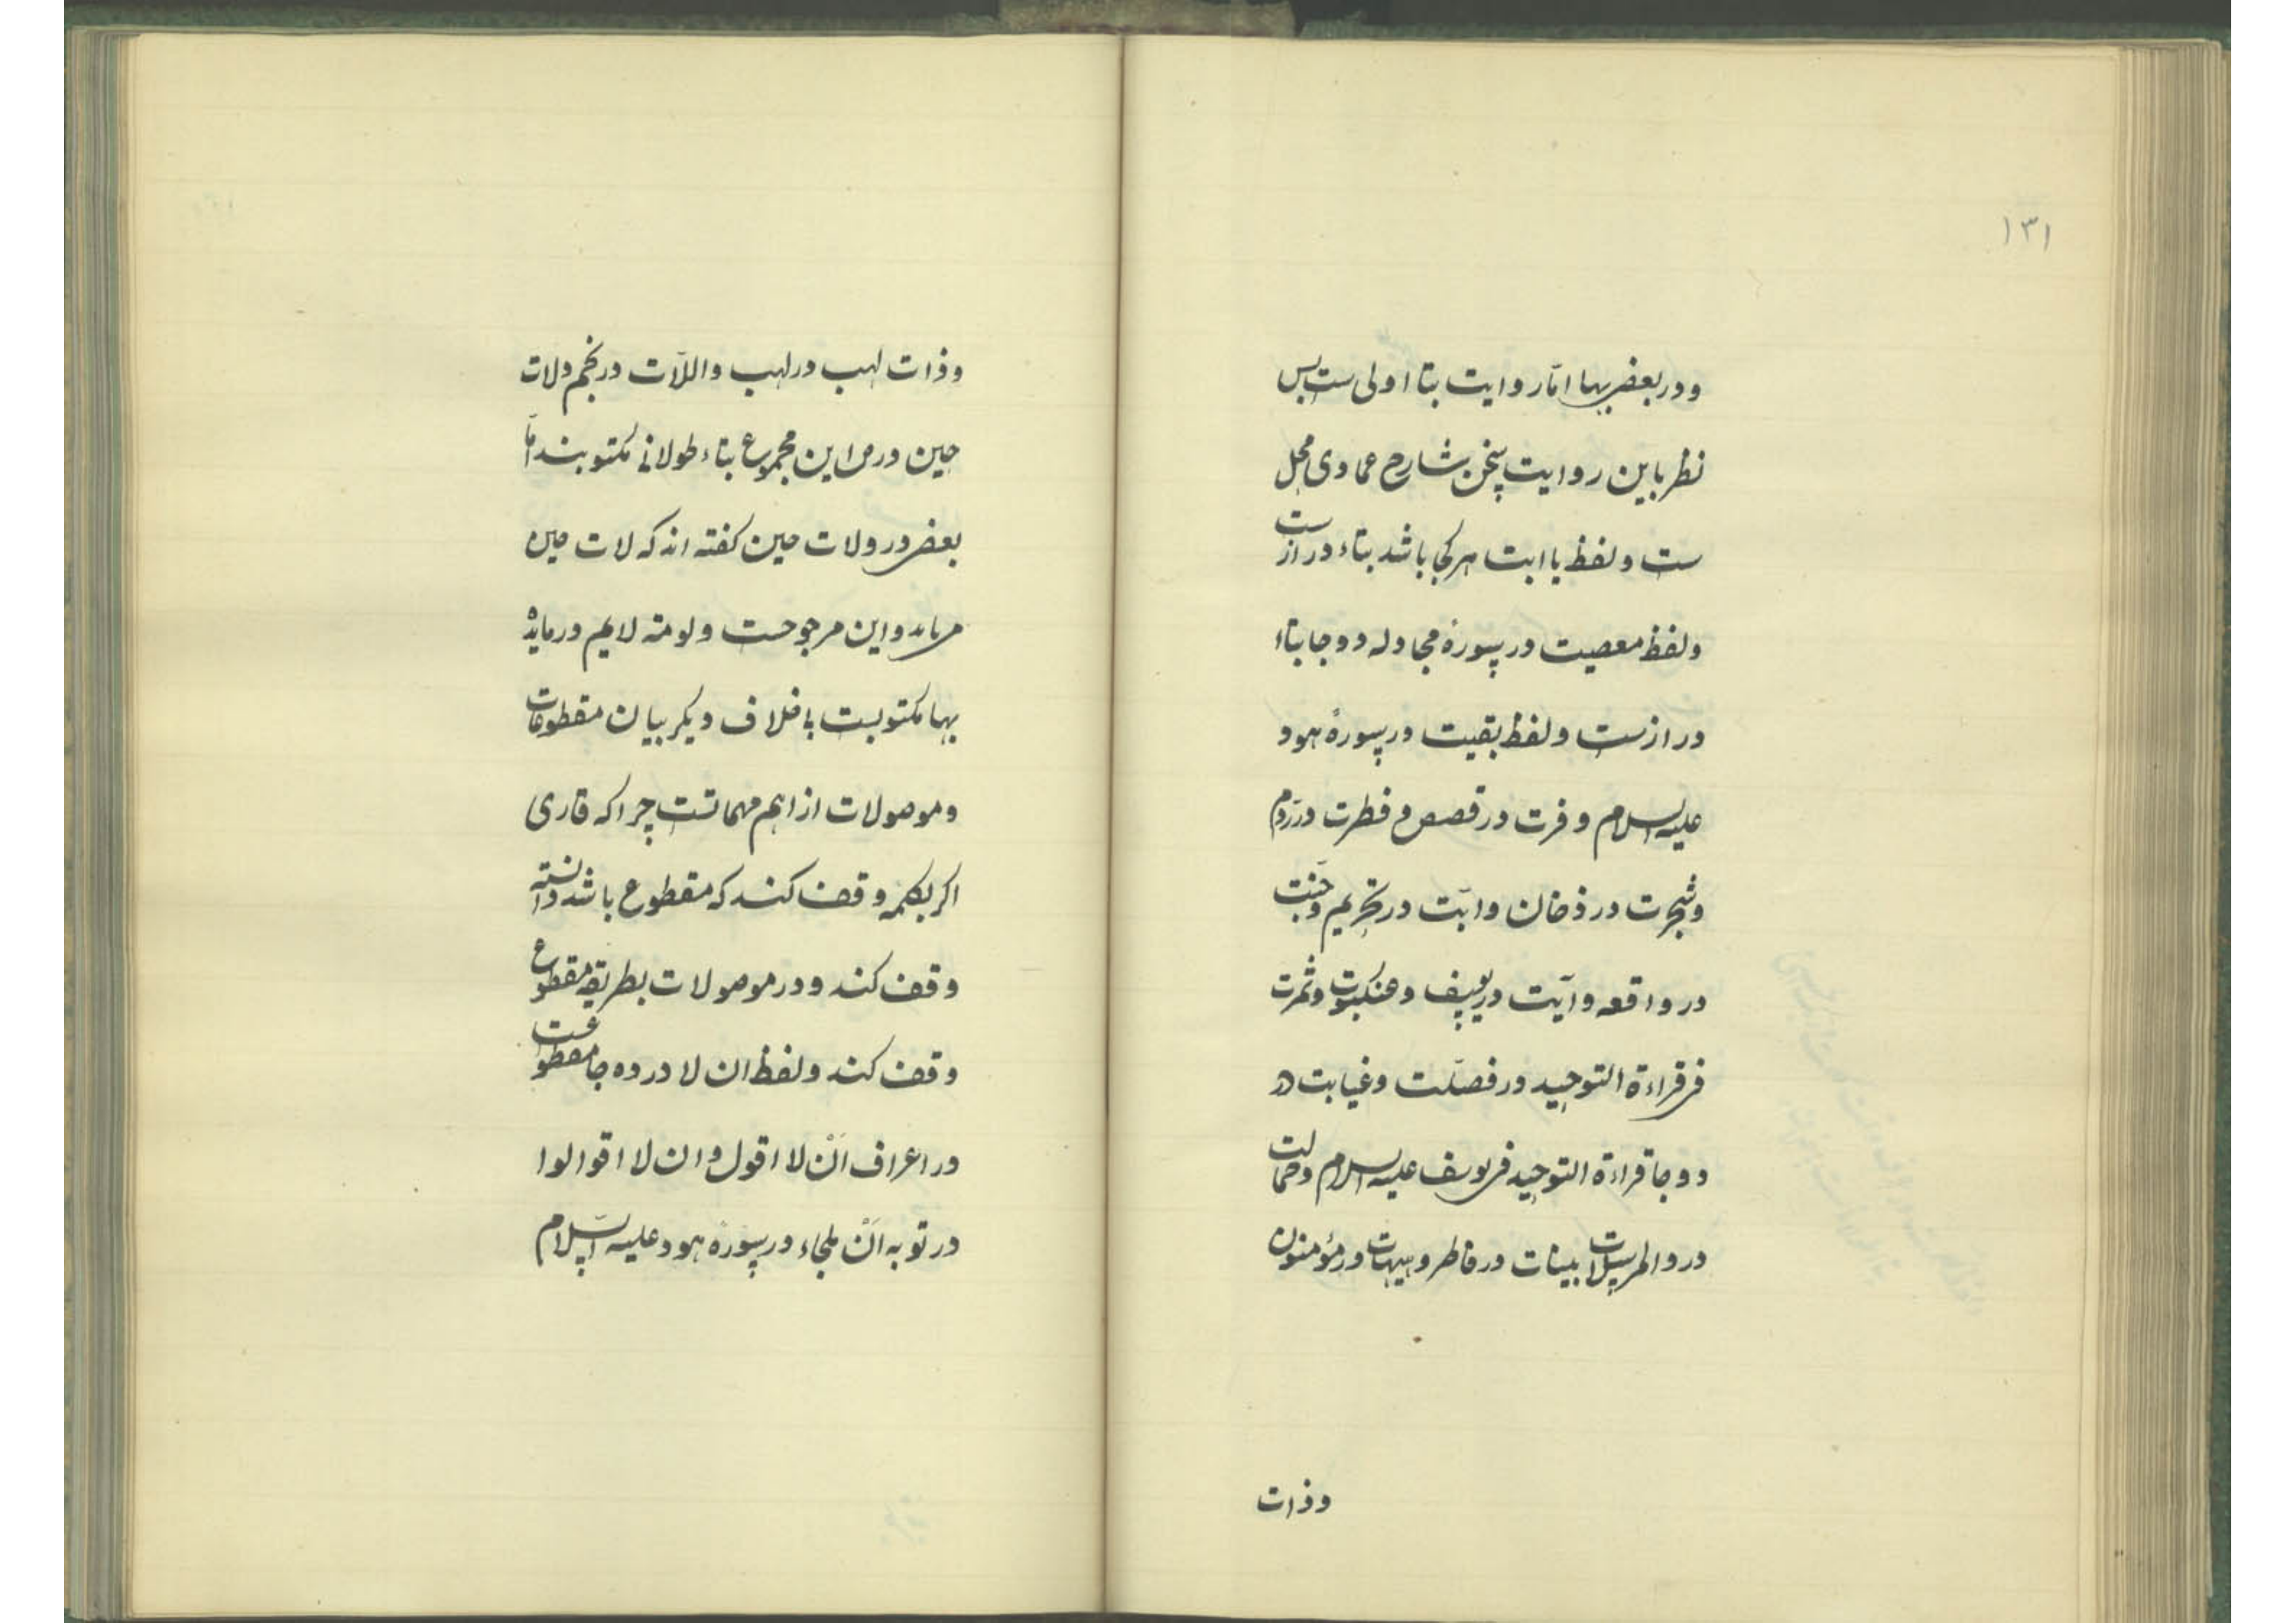 ۱۳۱
ودر بعض بها امّا روایت بتا اولی ست پس
نظر باین روایت سخن شارح عمادی محل
ست ولفظ یا ابت هر کجا باشد بتاء دراز ست
ولفظ معصیت در سورهٔ مجادله دو جا بتاء
دراز ست ولفظ بقیت در سورهٔ هود
علیه السلام و قرت در قصص و فطرت در روم
وشجرت در دخان وابنت در تحریم وجنت
در واقعه وآیت در یوسف وعنکبوت وثمرت
فی قراءة التوحید در فصّلت وغیابت در
دو جا قراءة التوحید فی یوسف علیه السلام وجمالت
در والمرسلات بینات در فاطر وهیهات در مؤمنون
وذات
وذات لهب در لهب واللّات در نجم ولات
حین در ص این مجموع بتاء طولانی مکتوبند امّا
بعض در ولات حین کفته اند که لات حین
می‌باید واین مرجوحست ولومة لایم در مایده
بها مکتوبست باختلاف دیکر بیان مقطوعات
وموصولات از اهم مهماتست چرا که قاری
اکر بکلمه وقف کند که مقطوع باشد دانسته
وقف کند ودر موصولات بطریق مقطوع
وقف کند ولفظ ان لا در ده جا مقطوعست
در اعراف اَنْ لا اقول وان لا اقوالوا
در توبه اَنْ ملجاء در سورهٔ هود علیه السّلام